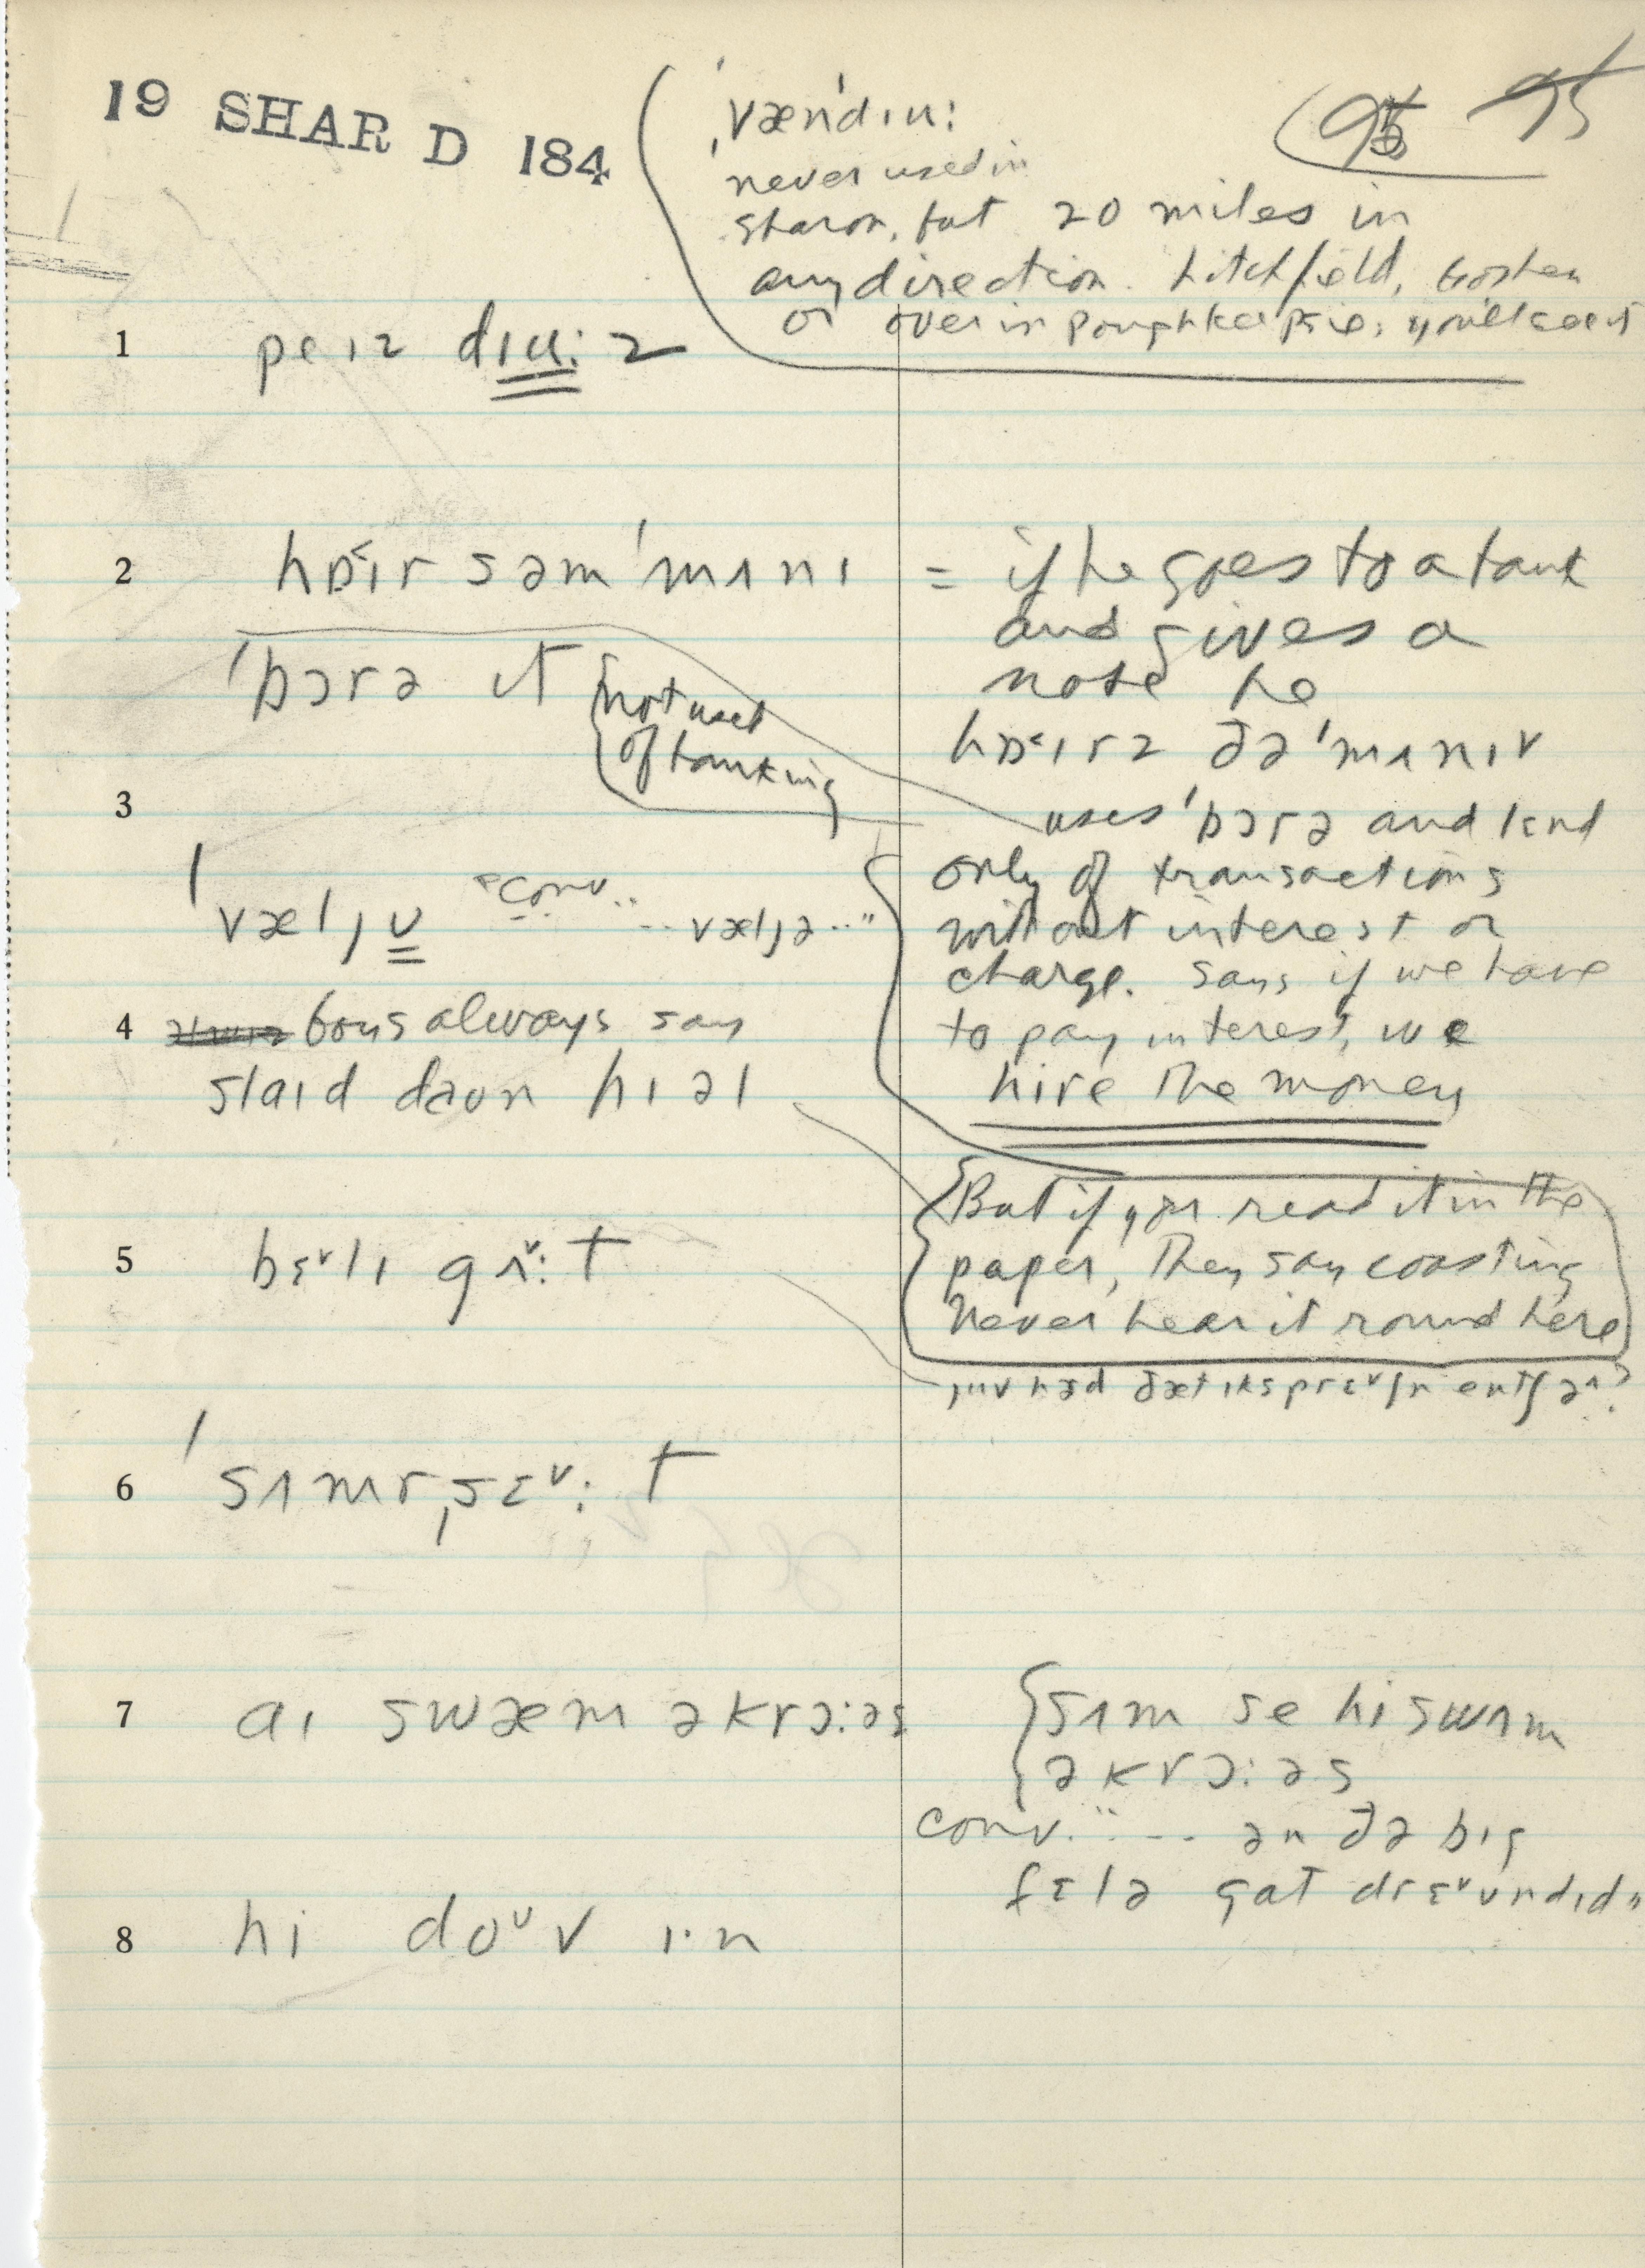 19 SHAR D 184
95 95
ˌvænˈdɪu:
never used in
Sharon, but 20 miles in
any direction. Litchfield, Goshen
or over in Poughkeepsie, you'll see it
1 peɪz dɪu:z
2 hɒ˂ɪr səm ˈmʌnɪ
ˈbɔrə ɪt
not used
of banking
= if he goes to a bank
and gives a
note he
hɒ˂ɪrz ðə ˈmʌnɪ
uses ˈbɔrə and lend
only of transactions
without interest or
charge. Says if we have
to pay interest, we
hire the money
3 ˈvælˌjʊ conv. "... væljə ..."
4 boys always say
slaɪd daʊn hɪəl
But if you read it in the
paper, they say coasting
Never hear it round here
5 bɛ˅lɪ gʌ˅:t
6 ˈsʌmrˌsɛ˅:t
7 aɪ swæm əkrɔ:əs
sʌm se hi swʌm
əkrɔ:əs
conv. "... ən ðə bɪg
fɛlə gat drɛ˅ʊndɪd"
8 hi doʊv ɪ·n